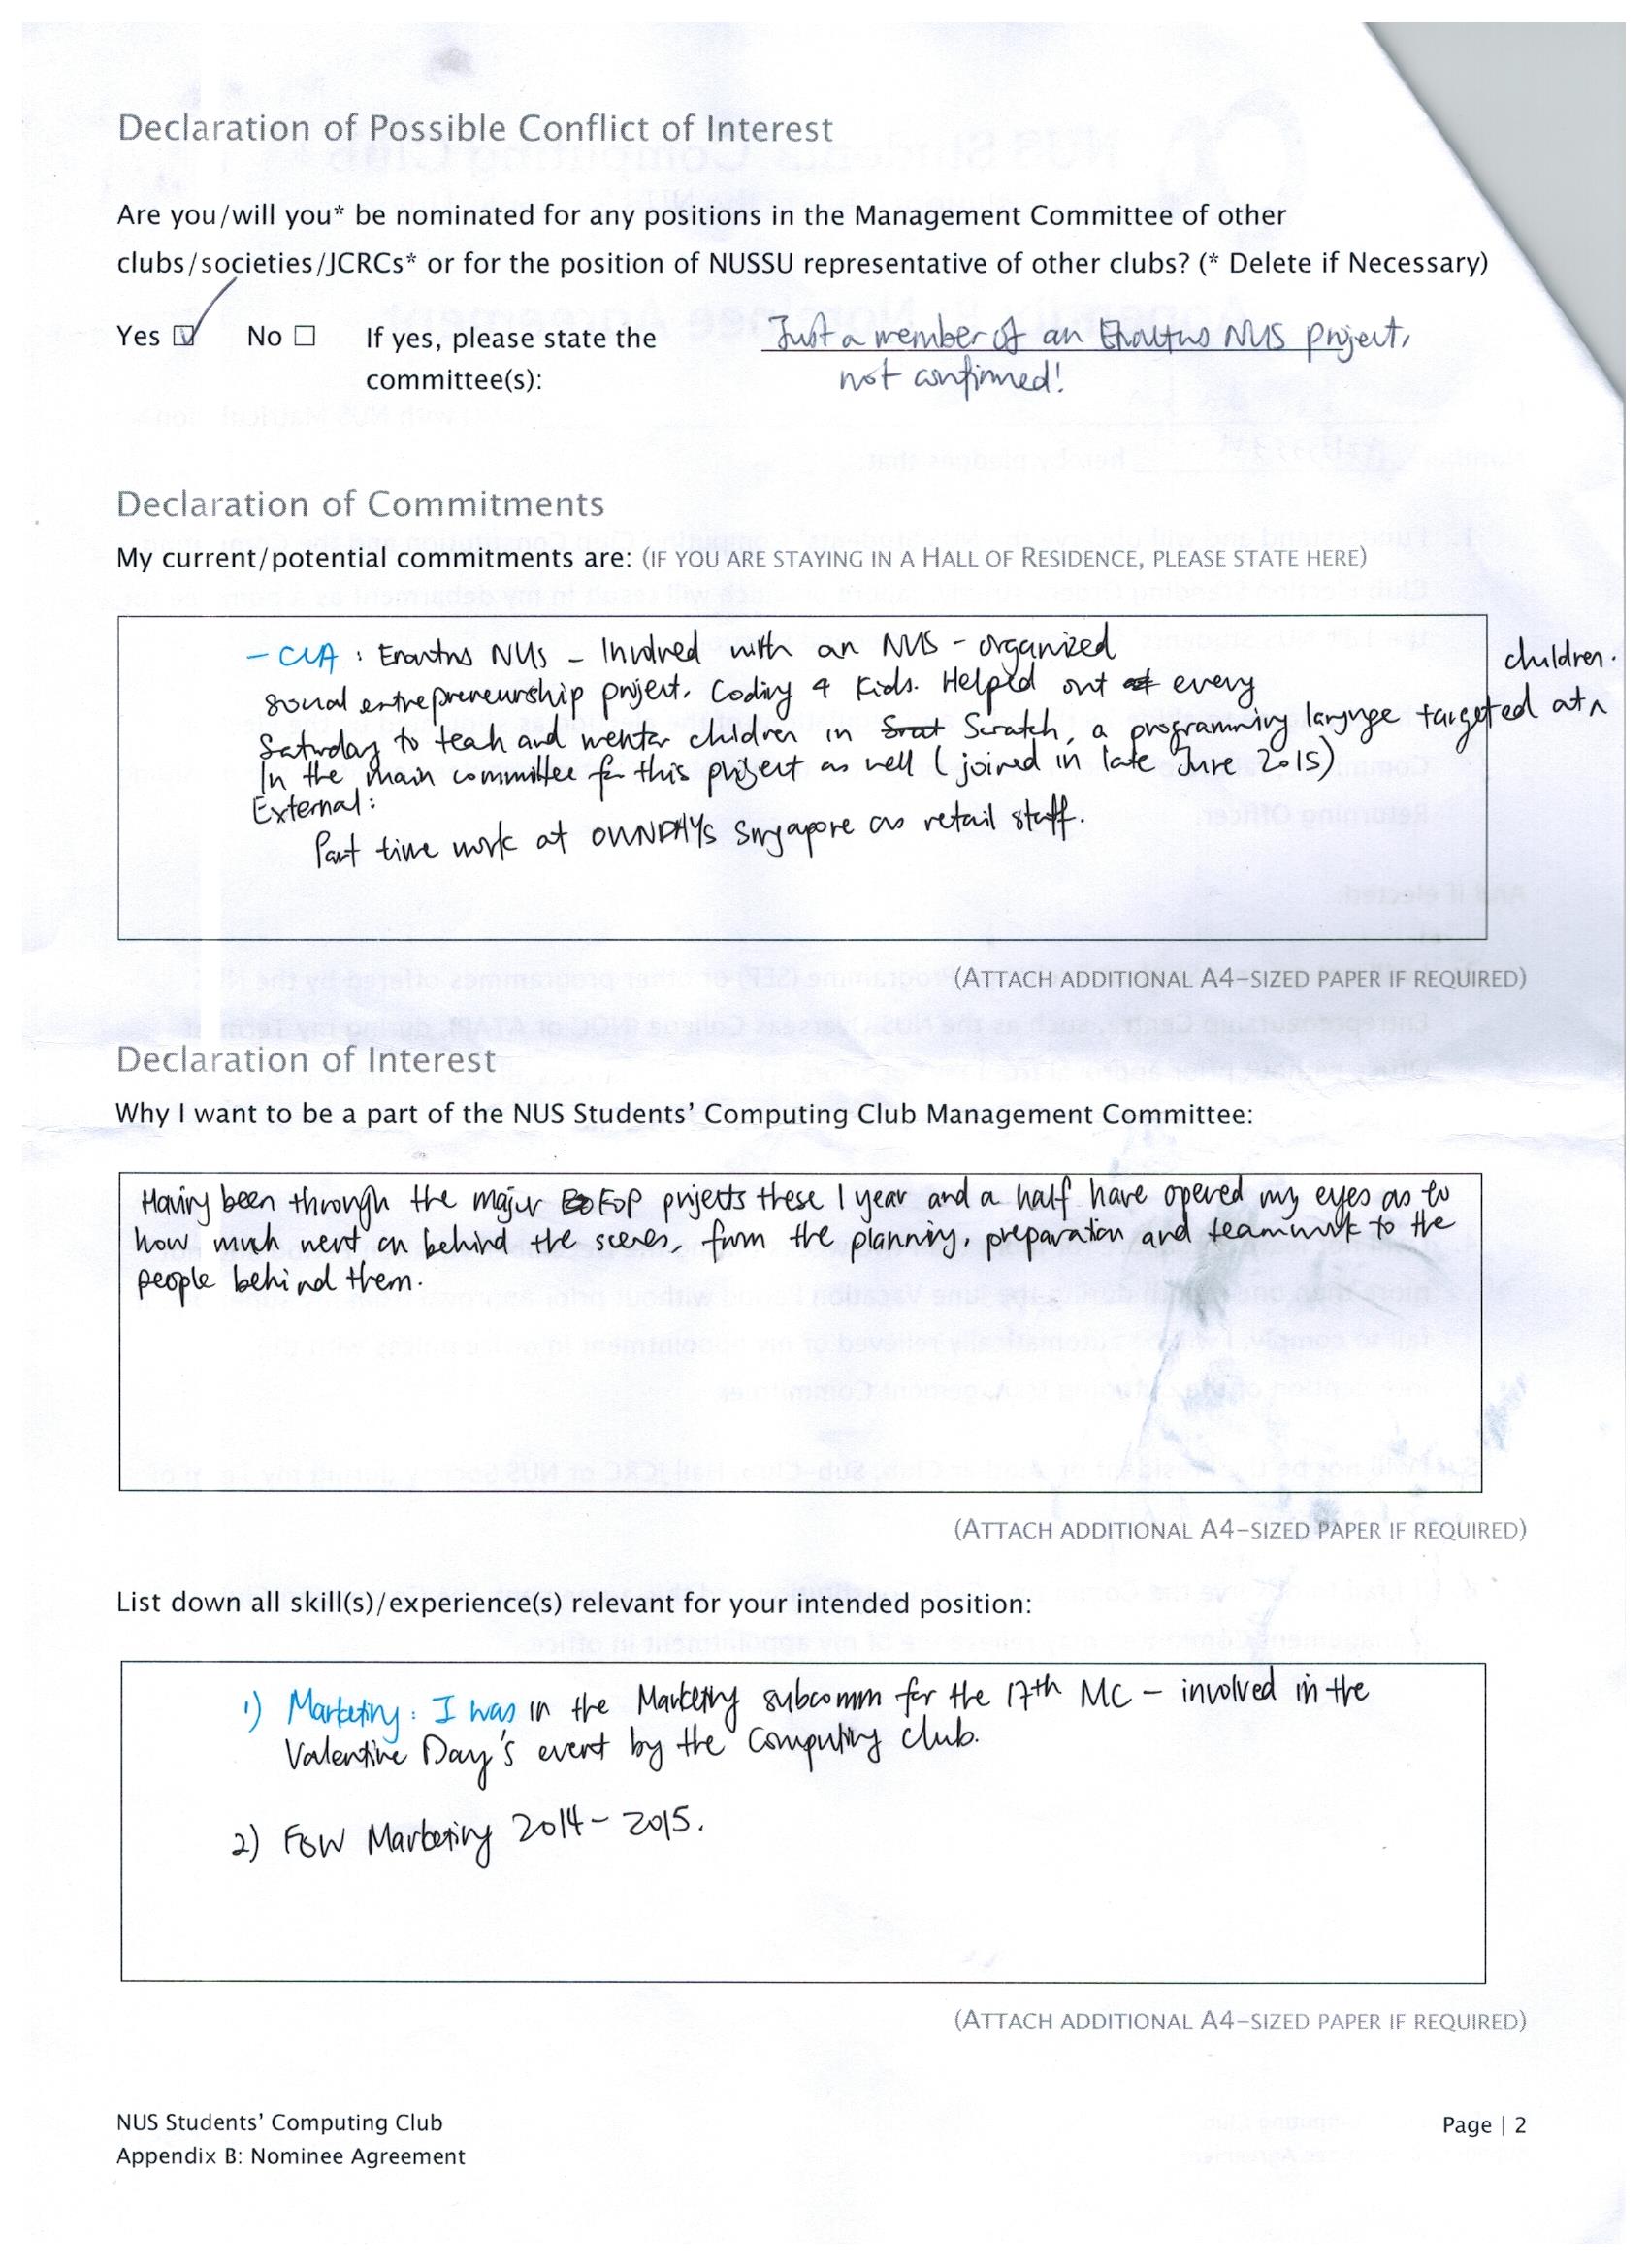 Declaration of Possible Conflict of Interest
Are you/will you* be nominated for any positions in the Management Committee of other
clubs/societies/JCRCs* or for the position of NUSSU representative of other clubs? (* Delete if Necessary)
Yes ☑ No ☐ If yes, please state the
committee(s):
Just a member of an NUS project,
not confirmed!
Declaration of Commitments
My current/potential commitments are: (IF YOU ARE STAYING IN A HALL OF RESIDENCE, PLEASE STATE HERE)
- : NUS - Involved with an NUS - organized
social entrepreneurship project, Coding 4 Kids. Helped out every
Saturday to teach and mentor children in Scratch, a programming language targeted at children.
In the main committee for this project as well (joined in late June 2015)
External:
Part time work at OWNDAYS Singapore as retail staff.
(ATTACH ADDITIONAL A4-SIZED PAPER IF REQUIRED)
Declaration of Interest
Why I want to be a part of the NUS Students' Computing Club Management Committee:
Having been through the major FOP projects these 1 year and a half have opened my eyes as to
how much went on behind the scenes, from the planning, preparation and teamwork to the
people behind them.
(ATTACH ADDITIONAL A4-SIZED PAPER IF REQUIRED)
List down all skill(s)/experience(s) relevant for your intended position:
1) Marketing: I was in the Marketing subcomm for the 17th MC - involved in the
Valentine Day's event by the Computing Club.
2) FOW Marketing 2014 - 2015.
(ATTACH ADDITIONAL A4-SIZED PAPER IF REQUIRED)
NUS Students' Computing Club
Appendix B: Nominee Agreement
Page | 2